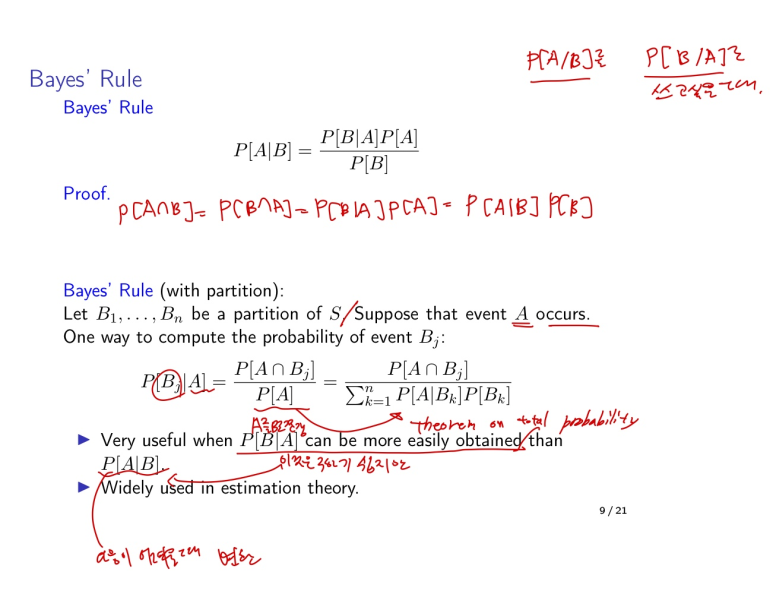 P[A/B]를 P[B/A]로
쓰고싶을때.
Bayes' Rule
Bayes' Rule
P[A|B] = P[B|A]P[A] / P[B]
Proof.
P[A∩B]= P[B∩A]= P[B|A]P[A]= P[A|B] P[B]
Bayes' Rule (with partition):
Let B₁, . . . , Bₙ be a partition of S. Suppose that event A occurs.
One way to compute the probability of event Bⱼ:
P[Bⱼ|A] = P[A ∩ Bⱼ] / P[A] = P[A ∩ Bⱼ] / ∑ₖ₌₁ⁿ P[A|Bₖ]P[Bₖ]
theorem on total probability
▶ Very useful when P[B|A] can be more easily obtained than
P[A|B].
▶ Widely used in estimation theory.
9 / 21